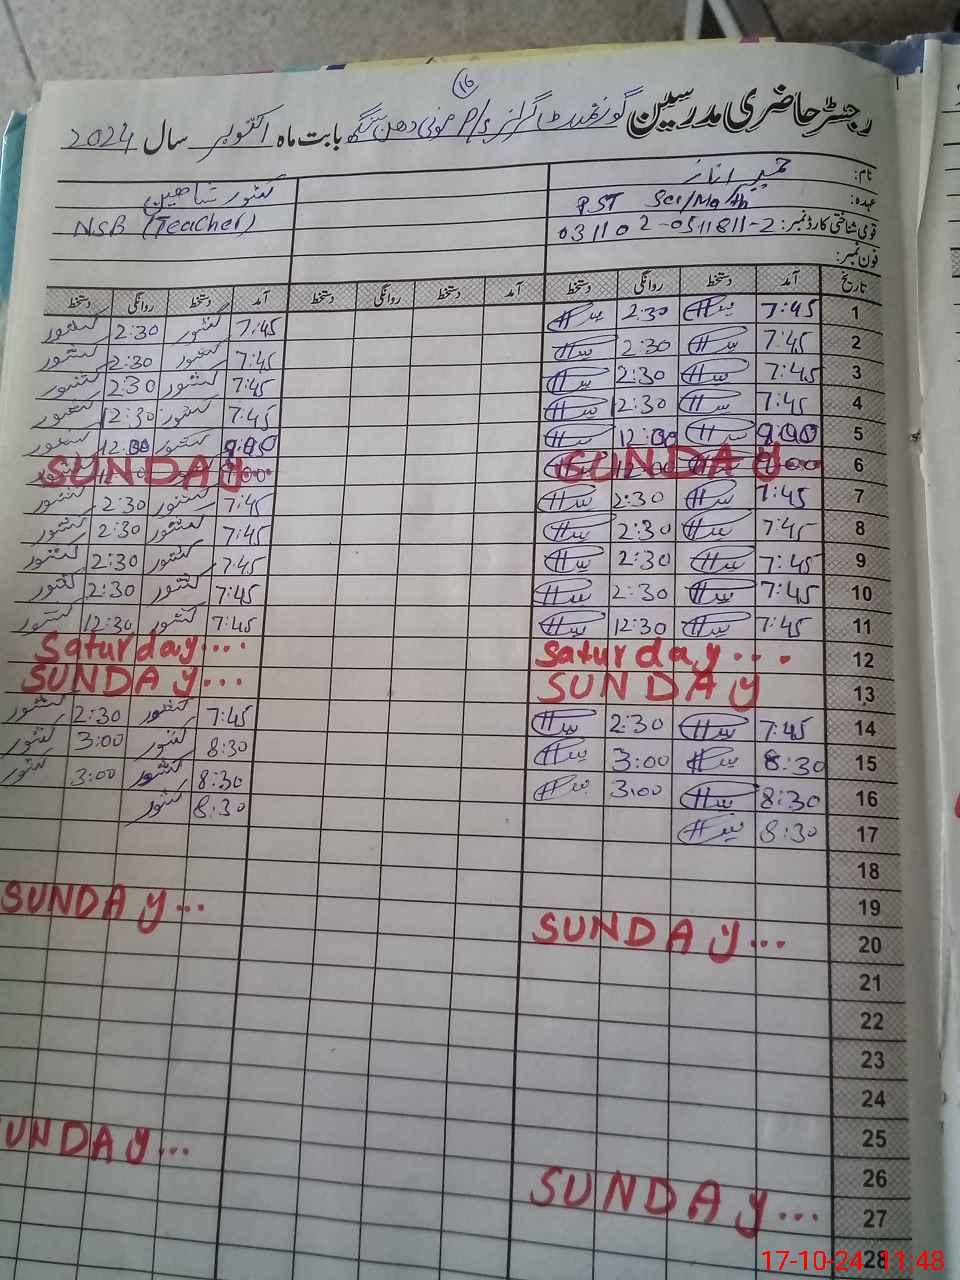 16
رجسٹر حاضری مدرسین گورنمنٹ گرلز P/S بابت ماہ اکتوبر سال 2024
نام:
عہدہ: PST Sci/Math
NSB (Teacher)
قومی شناختی کارڈ نمبر: 03110 2-0511811-2
فون نمبر:
تاریخ آمد دستخط روانگی دستخط آمد دستخط روانگی دستخط آمد دستخط روانگی دستخط
1 7:45 2:30 7:45 کشور 2:30 کشور
2 7:45 2:30 7:45 کشور 2:30 کشور
3 7:45 2:30 7:45 کشور 2:30 کشور
4 7:45 12:30 7:45 کشور 12:30 کشور
5 8:00 12:00 8:00 کشور 12:00 کشور
6 SUNDAY SUNDAY..
7 7:45 2:30 7:45 کشور 2:30 کشور
8 7:45 2:30 7:45 کشور 2:30 کشور
9 7:45 2:30 7:45 کشور 2:30 کشور
10 7:45 2:30 7:45 کشور 2:30 کشور
11 7:45 12:30 7:45 کشور 12:30 کشور
12 Saturday... Saturday....
13 SUNDAY SUNDAY...
14 7:45 2:30 7:45 کشور 2:30 کشور
15 8:30 3:00 8:30 کشور 3:00 کشور
16 8:30 3:00 8:30 کشور 3:00 کشور
17 8:30 8:30 کشور
18
19
20 SUNDAY... SUNDAY...
21
22
23
24
25
26
27 SUNDAY... UNDAY...
28
17-10-24 11:48